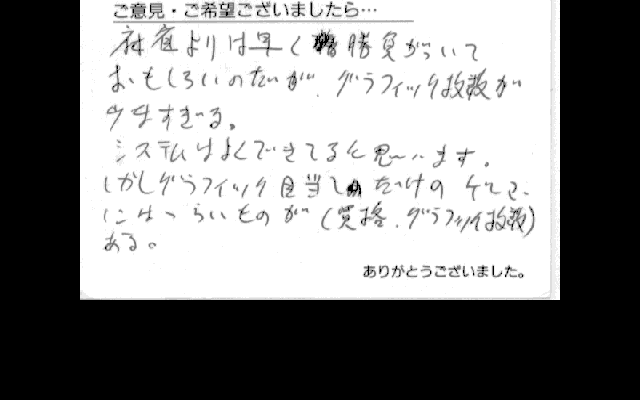 ご意見・ご希望ございましたら…
麻雀よりは早く勝負がついて
おもしろいのだが、グラフィック枚数が
少なすぎる。
システムはよくできてると思います。
しかしグラフィック目当てだけの
にはつらいものが(質格、グラフィック枚数)
ある。
ありがとうございました。